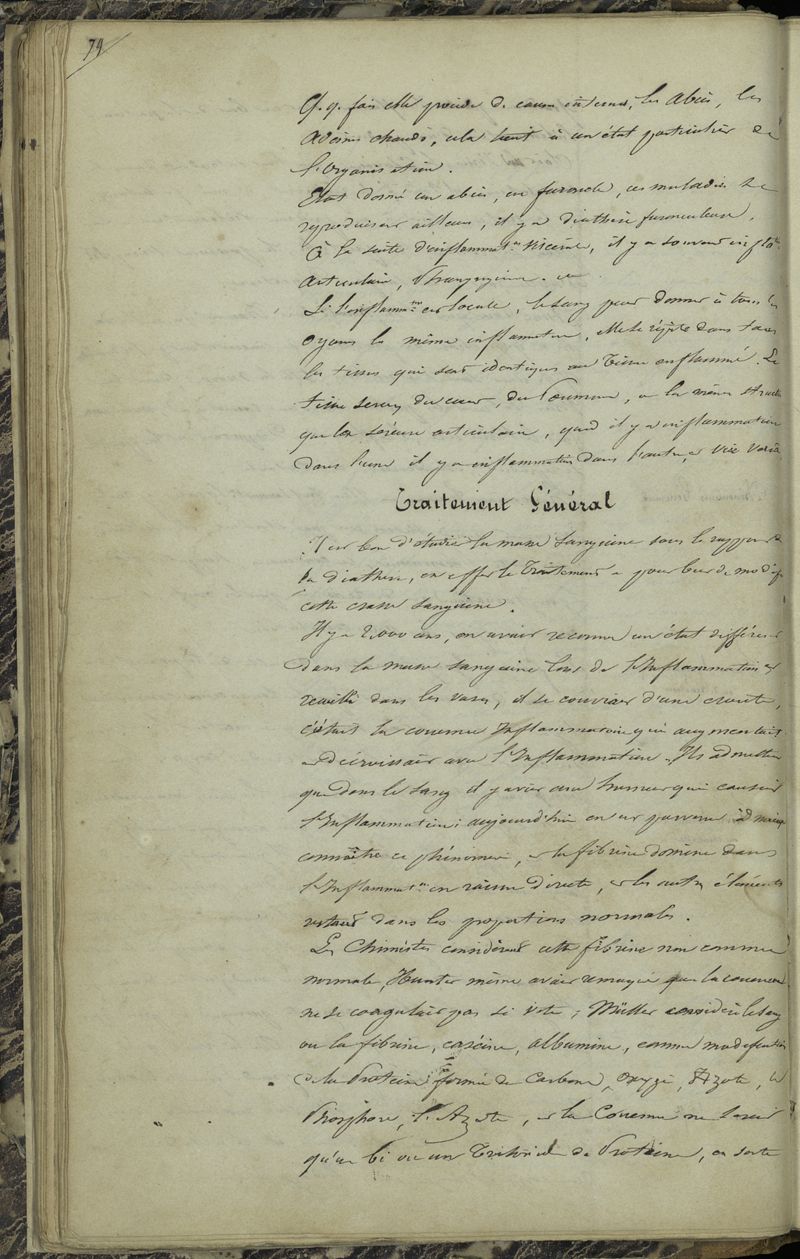 79
Q. q. fois elle procède de causes internes, les abcès, les
, cela tient à un état particulier de
l'organisation.
Etant donné un abcès, un furoncle, ces maladies se
reproduisent ailleurs, il y a diathèse furonculeuse.
À la suite d'inflammat.on viscérale, il y a souvent infl.on
articulaire,
Si l'inflamm.on est locale, le sang peut donner à tous les
organes la même inflammation, elle se répète dans tous
les tissus qui sont identiques au tissu enflammé. Le
tissu séreux du cœur, du Poumon, a la même struct
que la séreuse articulaire, quand il y a inflammation
dans l'une il y a inflammation dans l'autre, vice versâ
Traitement Général
Il est bon d'étudier la masse sanguine sous le rapport de
la diathèse, en effet le Traitement a pour but de modif
cette masse sanguine.
Il y a 2,000 ans, on avait reconnu un état différent
dans la masse sanguine lors de l'Inflammation et
recueilli dans les vases, il se couvrait d'une croûte,
c'était la couenne Inflammatoire qui augmentait
et décroissait avec l'Inflammation. Ils admettaient
que dans le sang il y avait une humeur qui causait
l'Inflammation; aujourd'hui on est parvenu à mieux
connaître ce phénomène, et la fibrine domine dans
l'Inflammat.on en raison directe, et les autres éléments
restant dans les proportions normales.
Les Chimistes considèrent cette fibrine non comme
normale, Hunter même avait remarqué que la couenne
ne se coagulait pas si vite; Müller considère le sang
ou la fibrine, caséine, albumine, comme modification
de la Protéine formée de Carbone, Oxyg., Azote, le
Phosphore, l'Azote, et la Couenne ne serait
qu'un bi ou un Tritoxide de Protéine, en sorte